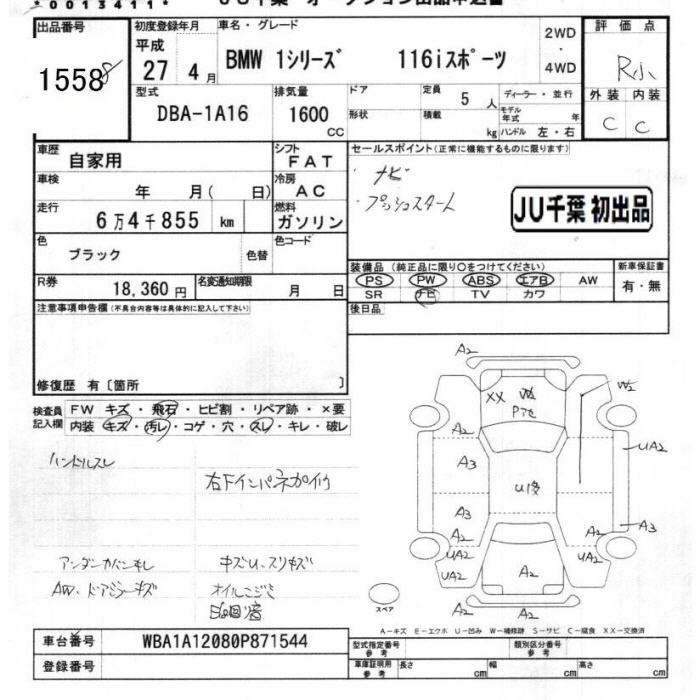 *0013411*
JU千葉 オークション出品申込書
出品番号
15588
初度登録年月
平成
27 4 月
車名・グレード
BMW 1シリーズ 116iスポーツ
2WD
・
4WD
評価点
R小
外装 内装
C C
型式
DBA-1A16
排気量
1600
CC
ドア
形状
定員 5 人
積載 kg
ディーラー・並行
モデル年式 年
ハンドル 左・右
車歴 自家用
シフト FAT
車検 年 月( 日)
冷房 AC
走行 6万4千855 km
燃料 ガソリン
色 ブラック 色替
色コード
R券 18,360 円
名変通知期限 月 日
セールスポイント(正常に機能するものに限ります)
・ナビ
・プッシュスタート
JU千葉 初出品
装備品(純正品に限り○をつけてください)
PS PW ABS エアB AW
SR ナビ TV カワ
新車保証書
有・無
後日品
注意事項申告欄(不具合内容等は具体的に記入して下さい)
修復歴 有〔箇所 〕
検査員記入欄
FW キズ・飛石・ヒビ割・リペア跡・×要
内装 キズ・汚レ・コゲ・穴・スレ・キレ・破レ
ハンドルスレ
アンダーカバー無し
AW、ドアミラーキズ
キズU、スリキズ
オイルニジミ
A2
XX W2
A2
W2
A3
U1
UA2
A3
A2
A3
UA2
UA2
UA2
UA2
A2
A2
スペア
A-キズ E-エクボ U-凹み W-補修跡 S-サビ C-腐食 XX-交換済
車台番号 WBA1A12080P871544
登録番号
型式指定番号
参考
類別区分番号
参考
車庫証明用
参考
長さ cm 幅 cm 高さ cm